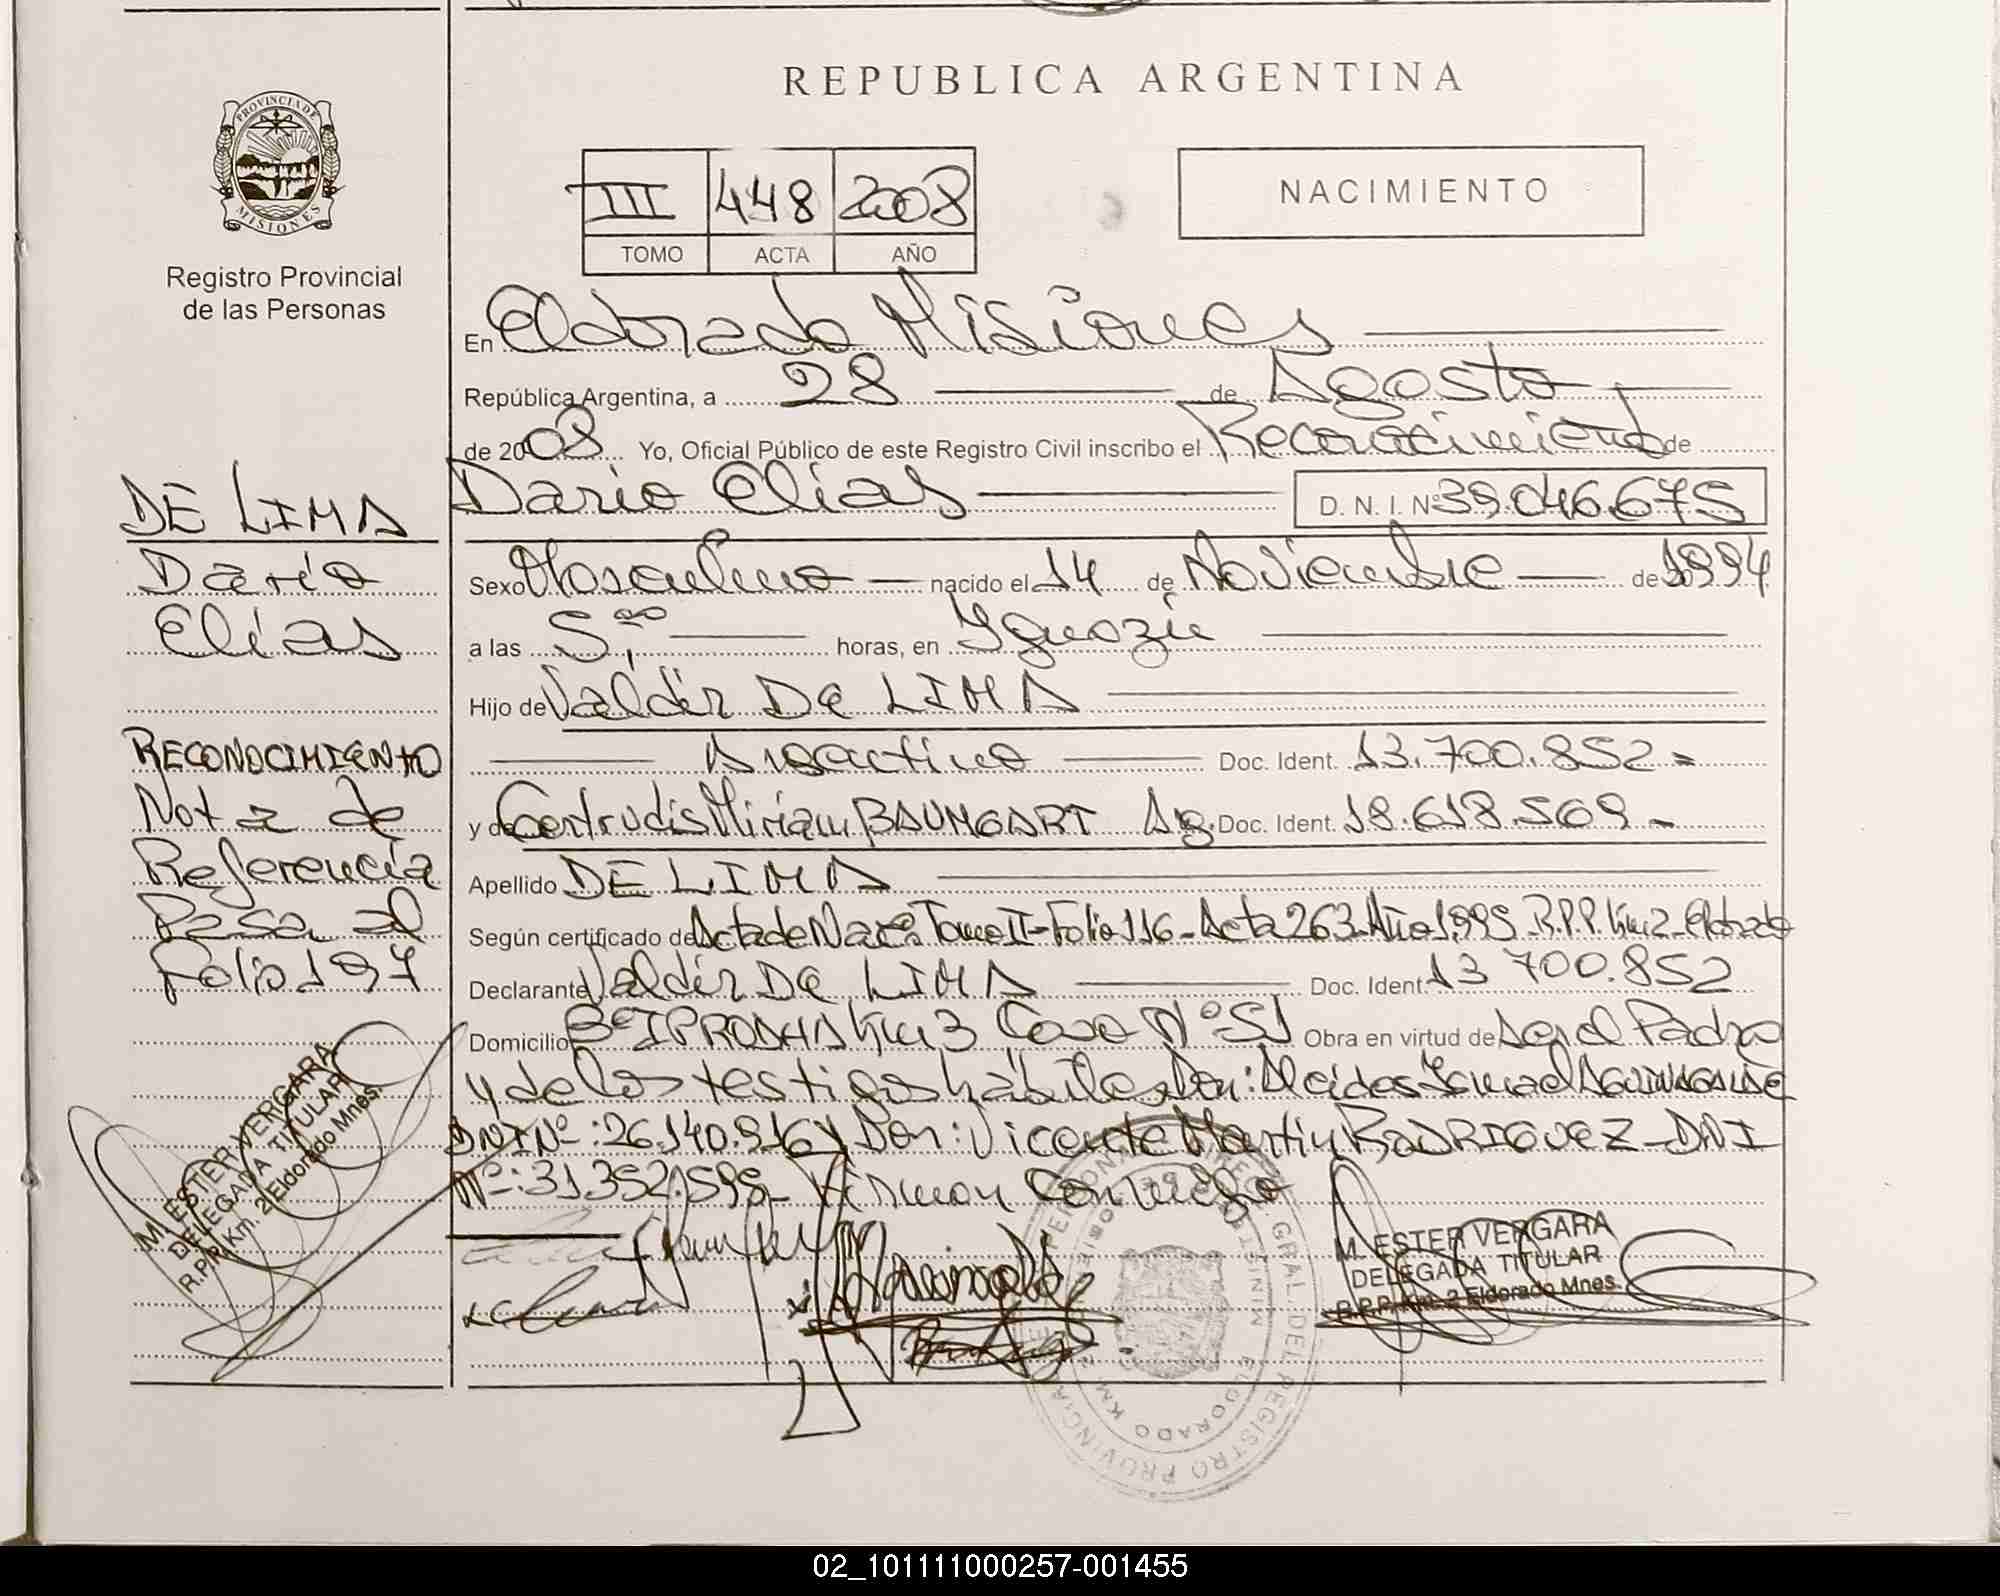 REPUBLICA ARGENTINA
PROVINCIA DE MISIONES
Registro Provincial
de las Personas
III 448 2008
TOMO ACTA AÑO
NACIMIENTO
En Eldorado Misiones
República Argentina, a 28 de Agosto
de 2008 Yo, Oficial Público de este Registro Civil inscribo el Reconocimiento de
Dario Elias D. N. I. Nº 39.046.675
Sexo Masculino nacido el 14 de Noviembre de 1994
a las 5,00 horas, en Iguazú
Hijo de Valdir De LIMA
Argentino Doc. Ident. 13.700.852 =
y de Gertrudis Miriam BAUMGART Arg. Doc. Ident. 18.618.569 -
Apellido DE LIMA
Según certificado de Acta de Nac. Tomo II - Folio 116 - Acta 263 - Año 1995 - R.P.P. Km 2 - Eldorado
Declarante Valdir De LIMA Doc. Ident. 13 700.852
Domicilio Bº IPRODHA Km 3 Casa Nº 51 Obra en virtud de Ser el Padre
y de los testigos hábiles Don: Alcides Ismael
DNI Nº: 26.140.916 y Don: Vicente Martin RODRIGUEZ - DNI
Nº: 31.352.595 - Firman Conmigo
DE LIMA
Dario
Elias
RECONOCIMIENTO
Nota de
Referencia
Pasa al
folio 197
M. ESTER VERGARA
DELEGADA TITULAR
R.P.P. Km. 2 Eldorado Mnes.
M. ESTER VERGARA
DELEGADA TITULAR
R.P.P. Km. 2 Eldorado Mnes.
02_101111000257-001455